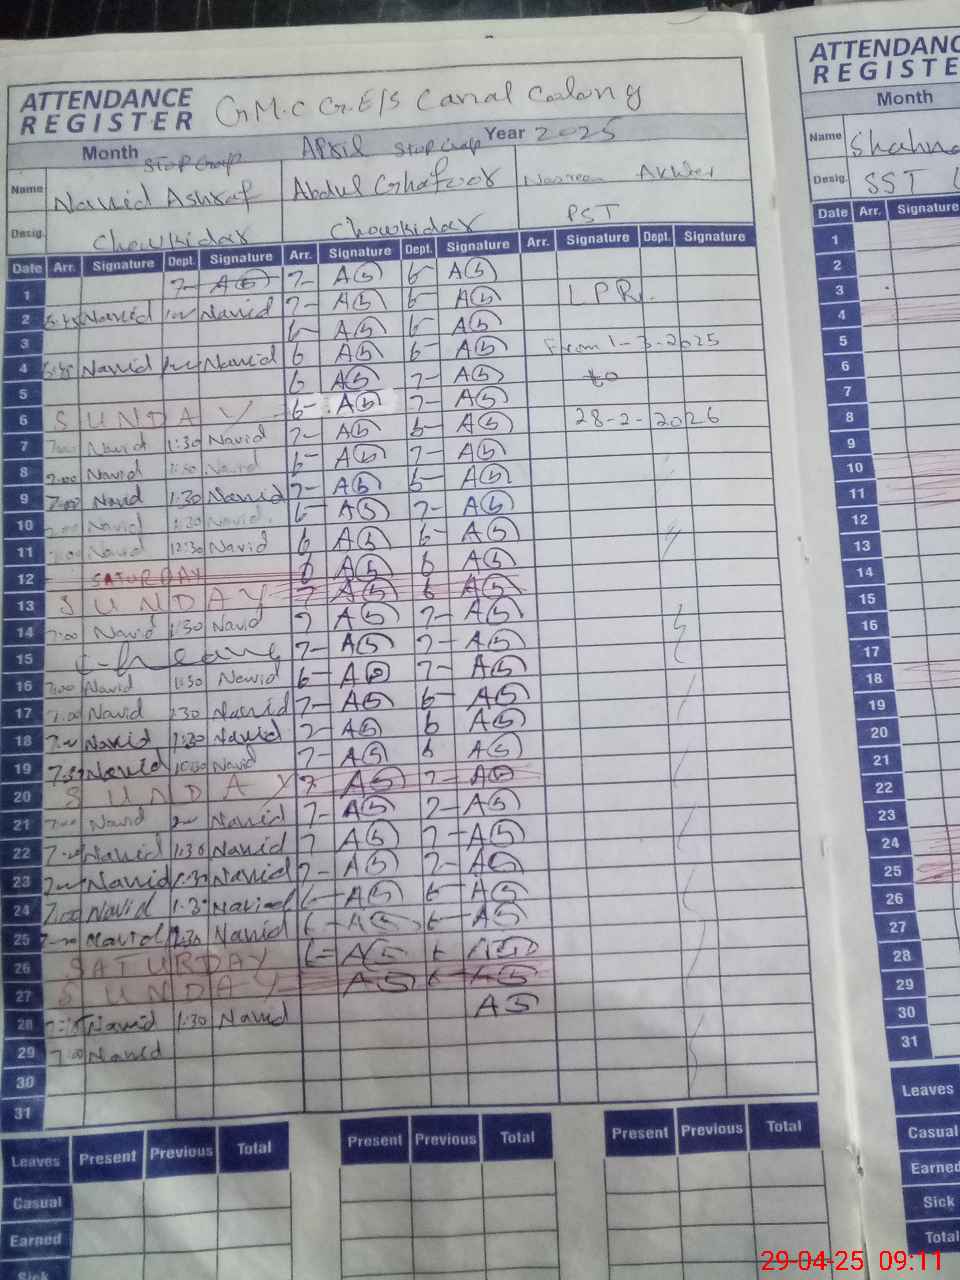 ATTENDANCE REGISTER G.M.C G.E/S Canal Colony
Month April Year 2025
Stop Gap Stop Gap
Name Navid Ashraf Abdul Ghafoor Nasreen Akhter
Desig. Chowkidar Chowkidar PST
Date Arr. Signature Dept. Signature Arr. Signature Dept. Signature Arr. Signature Dept. Signature
1 7- AG 7- AG 6- AG
2 Navid Navid 7- AG 6- AG LPR.
3 6- AG 6- AG
4 Navid Navid 6 AG 6- AG From 1-3-2025
5 6 AG 7- AG to
6 SUNDAY 6- AG 7- AG
7 7:00 Navid 1:30 Navid 7- AG 6- AG 28-2-2026
8 7:00 Navid 1:30 Navid 6- AG 7- AG
9 7:00 Navid 1:30 Navid 7- AG 6- AG
10 7:00 Navid 1:30 Navid 6- AG 7- AG
11 7:00 Navid 12:30 Navid 6 AG 6- AG
12 SATURDAY 6 AG 6 AG
13 SUNDAY 7 AG 6 AG
14 7:00 Navid 1:30 Navid 7 AG 7- AG
15 7- AG 7- AG
16 7:00 Navid 1:30 Navid 6- AG 7- AG
17 7:00 Navid 1:30 Navid 7- AG 6- AG
18 Navid 1:30 Navid 7- AG 6 AG
19 7:30 Navid Navid 7- AG 6 AG
20 SUNDAY 7 AG 7- AG
21 7:00 Navid Navid 7- AG 7- AG
22 7:00 Navid 1:30 Navid 7 AG 7- AG
23 Navid 1:30 Navid 7- AG 7- AG
24 7:00 Navid 1:30 Navid 6- AG 6- AG
25 Navid Navid 6- AG 6- AG
26 SATURDAY 6- AG 6 AG
27 SUNDAY AG 6 AG
28 Navid 1:30 Navid AG
29 7:00 Navid
30
31
Leaves Present Previous Total Present Previous Total Present Previous Total
Casual
Earned
Sick
ATTENDANC
REGISTE
Month
Name Shahna
Desig. SST
Date Arr. Signature
1
2
3
4
5
6
7
8
9
10
11
12
13
14
15
16
17
18
19
20
21
22
23
24
25
26
27
28
29
30
31
Leaves
Casual
Earned
Sick
Total
29-04-25 09:11